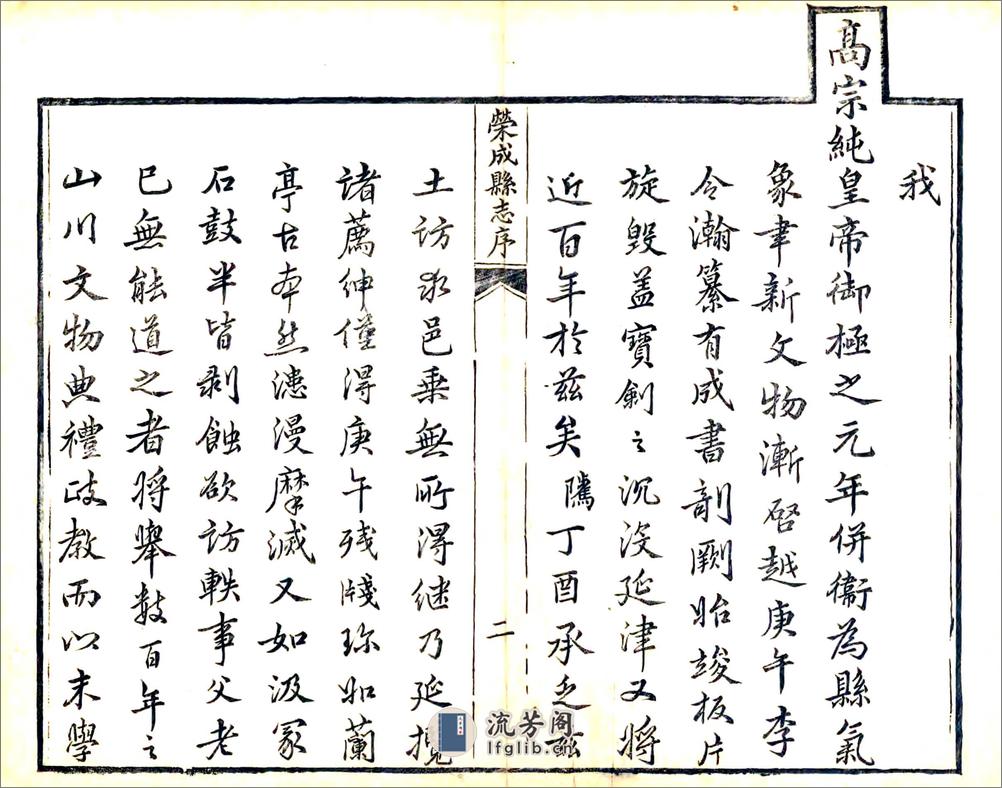 我
高宗純皇帝御極之元年併衞為縣氣
象聿新文物漸啓越庚午李
令瀚纂有成書剞劂始竣板片
旋毀盖寶劍之沉没延津又將
近百年於兹矣騰丁酉承乏兹
榮成縣志序
二
土訪求邑乗無所得继乃延攬
諸薦紳僅得庚午殘牋珍如蘭
亭古本然漶漫摩滅又如汲冢
石鼓半皆剥蝕欲訪軼事父老
已無能道之者将舉數百年之
山川文物典禮政教而以末學
流芳阁
lfglib.cn